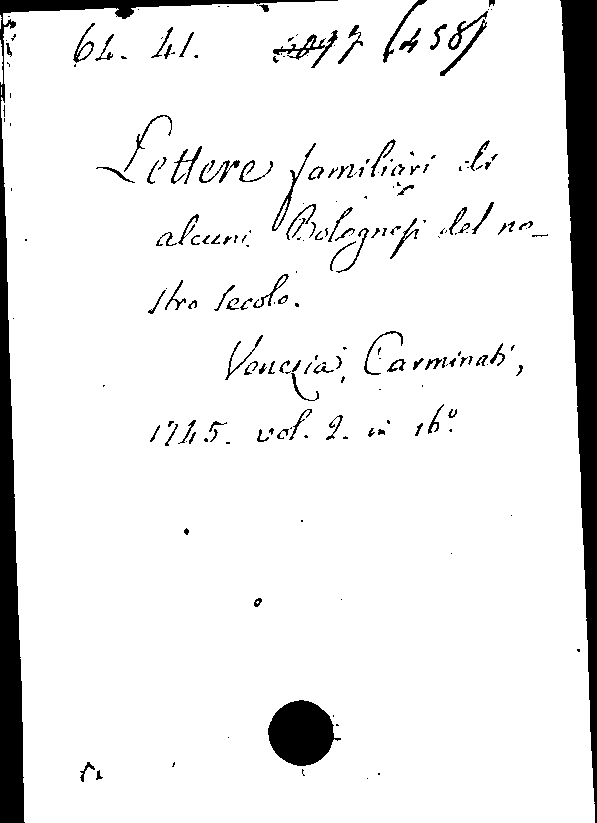 64. 41. (458)
Lettere familiari di
alcuni Bolognesi del no-
stro secolo.
Venezia, Carminati,
1745. vol. 2. in 16º.